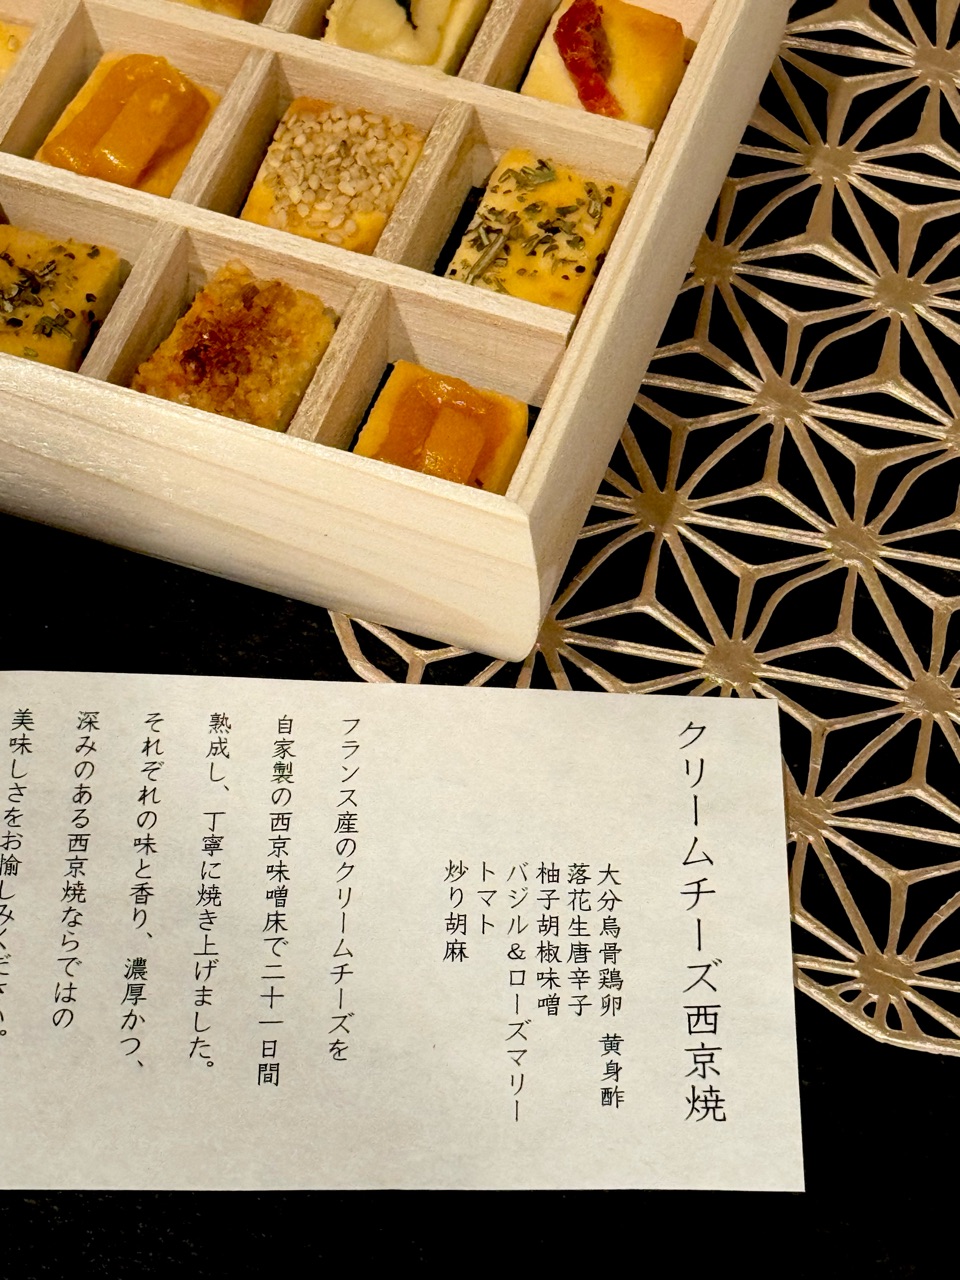 クリームチーズ西京焼
大分烏骨鶏卵 黄身酢
落花生唐辛子
柚子胡椒味噌
バジル&ローズマリー
トマト
炒り胡麻
フランス産のクリームチーズを
自家製の西京味噌床で二十一日間
熟成し、丁寧に焼き上げました。
それぞれの味と香り、濃厚かつ、
深みのある西京焼ならではの
美味しさをお愉しみください。